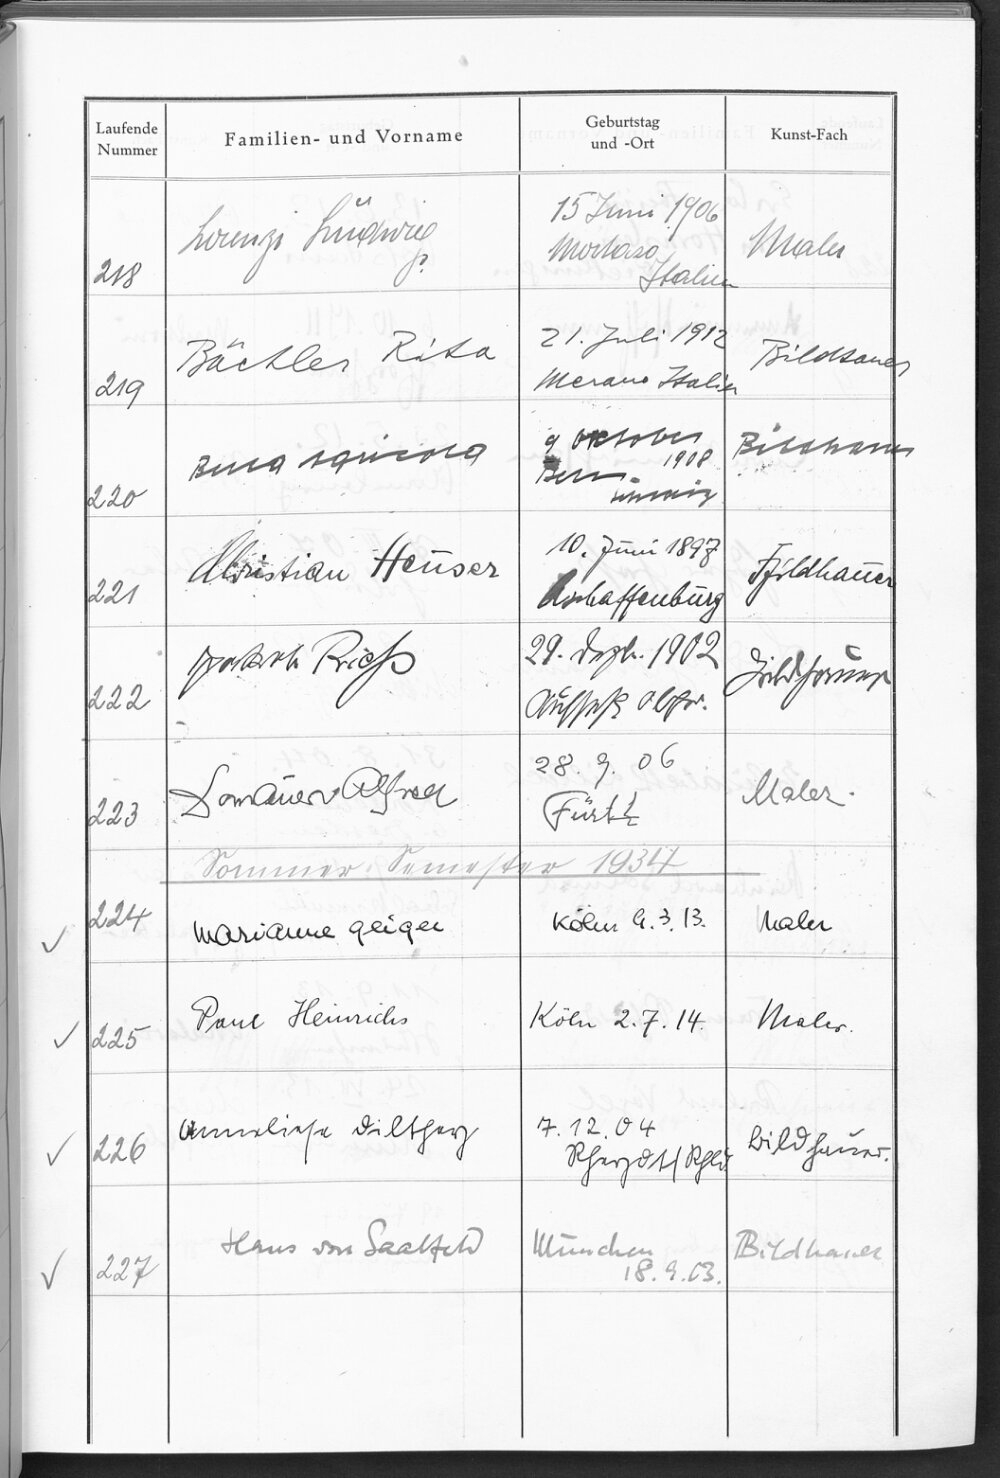 Laufende Nummer
Familien- und Vorname
Geburtstag und -Ort
Kunst-Fach
218 Lorenzi Ludwig 15 Juni 1906 Maler
Italien
219 Bächler Rita 21. Juli 1912 Bildhauer
Merano Italien
220 9 Oktober 1908 Bildhauer
Bern
221 Christian Heuser 10. Juni 1897 Bildhauer
Aschaffenburg
222 Jakob Rieß 29. Dezbr. 1902 Bildhauer
Aufseß Obfr.
223 Alfred 28. 9. 06 Maler.
Fürth
Sommer-Semester 1934
224 Marianne Geiger Köln 9.3.13. Maler
225 Paul Heinrichs Köln 2.7.14. Maler.
226 Anneliese Dilthey 7.12.04 Bildhauer.
Rheydt/Rhld
227 Hans von Saalfeld München Bildhauer
18.9.03.